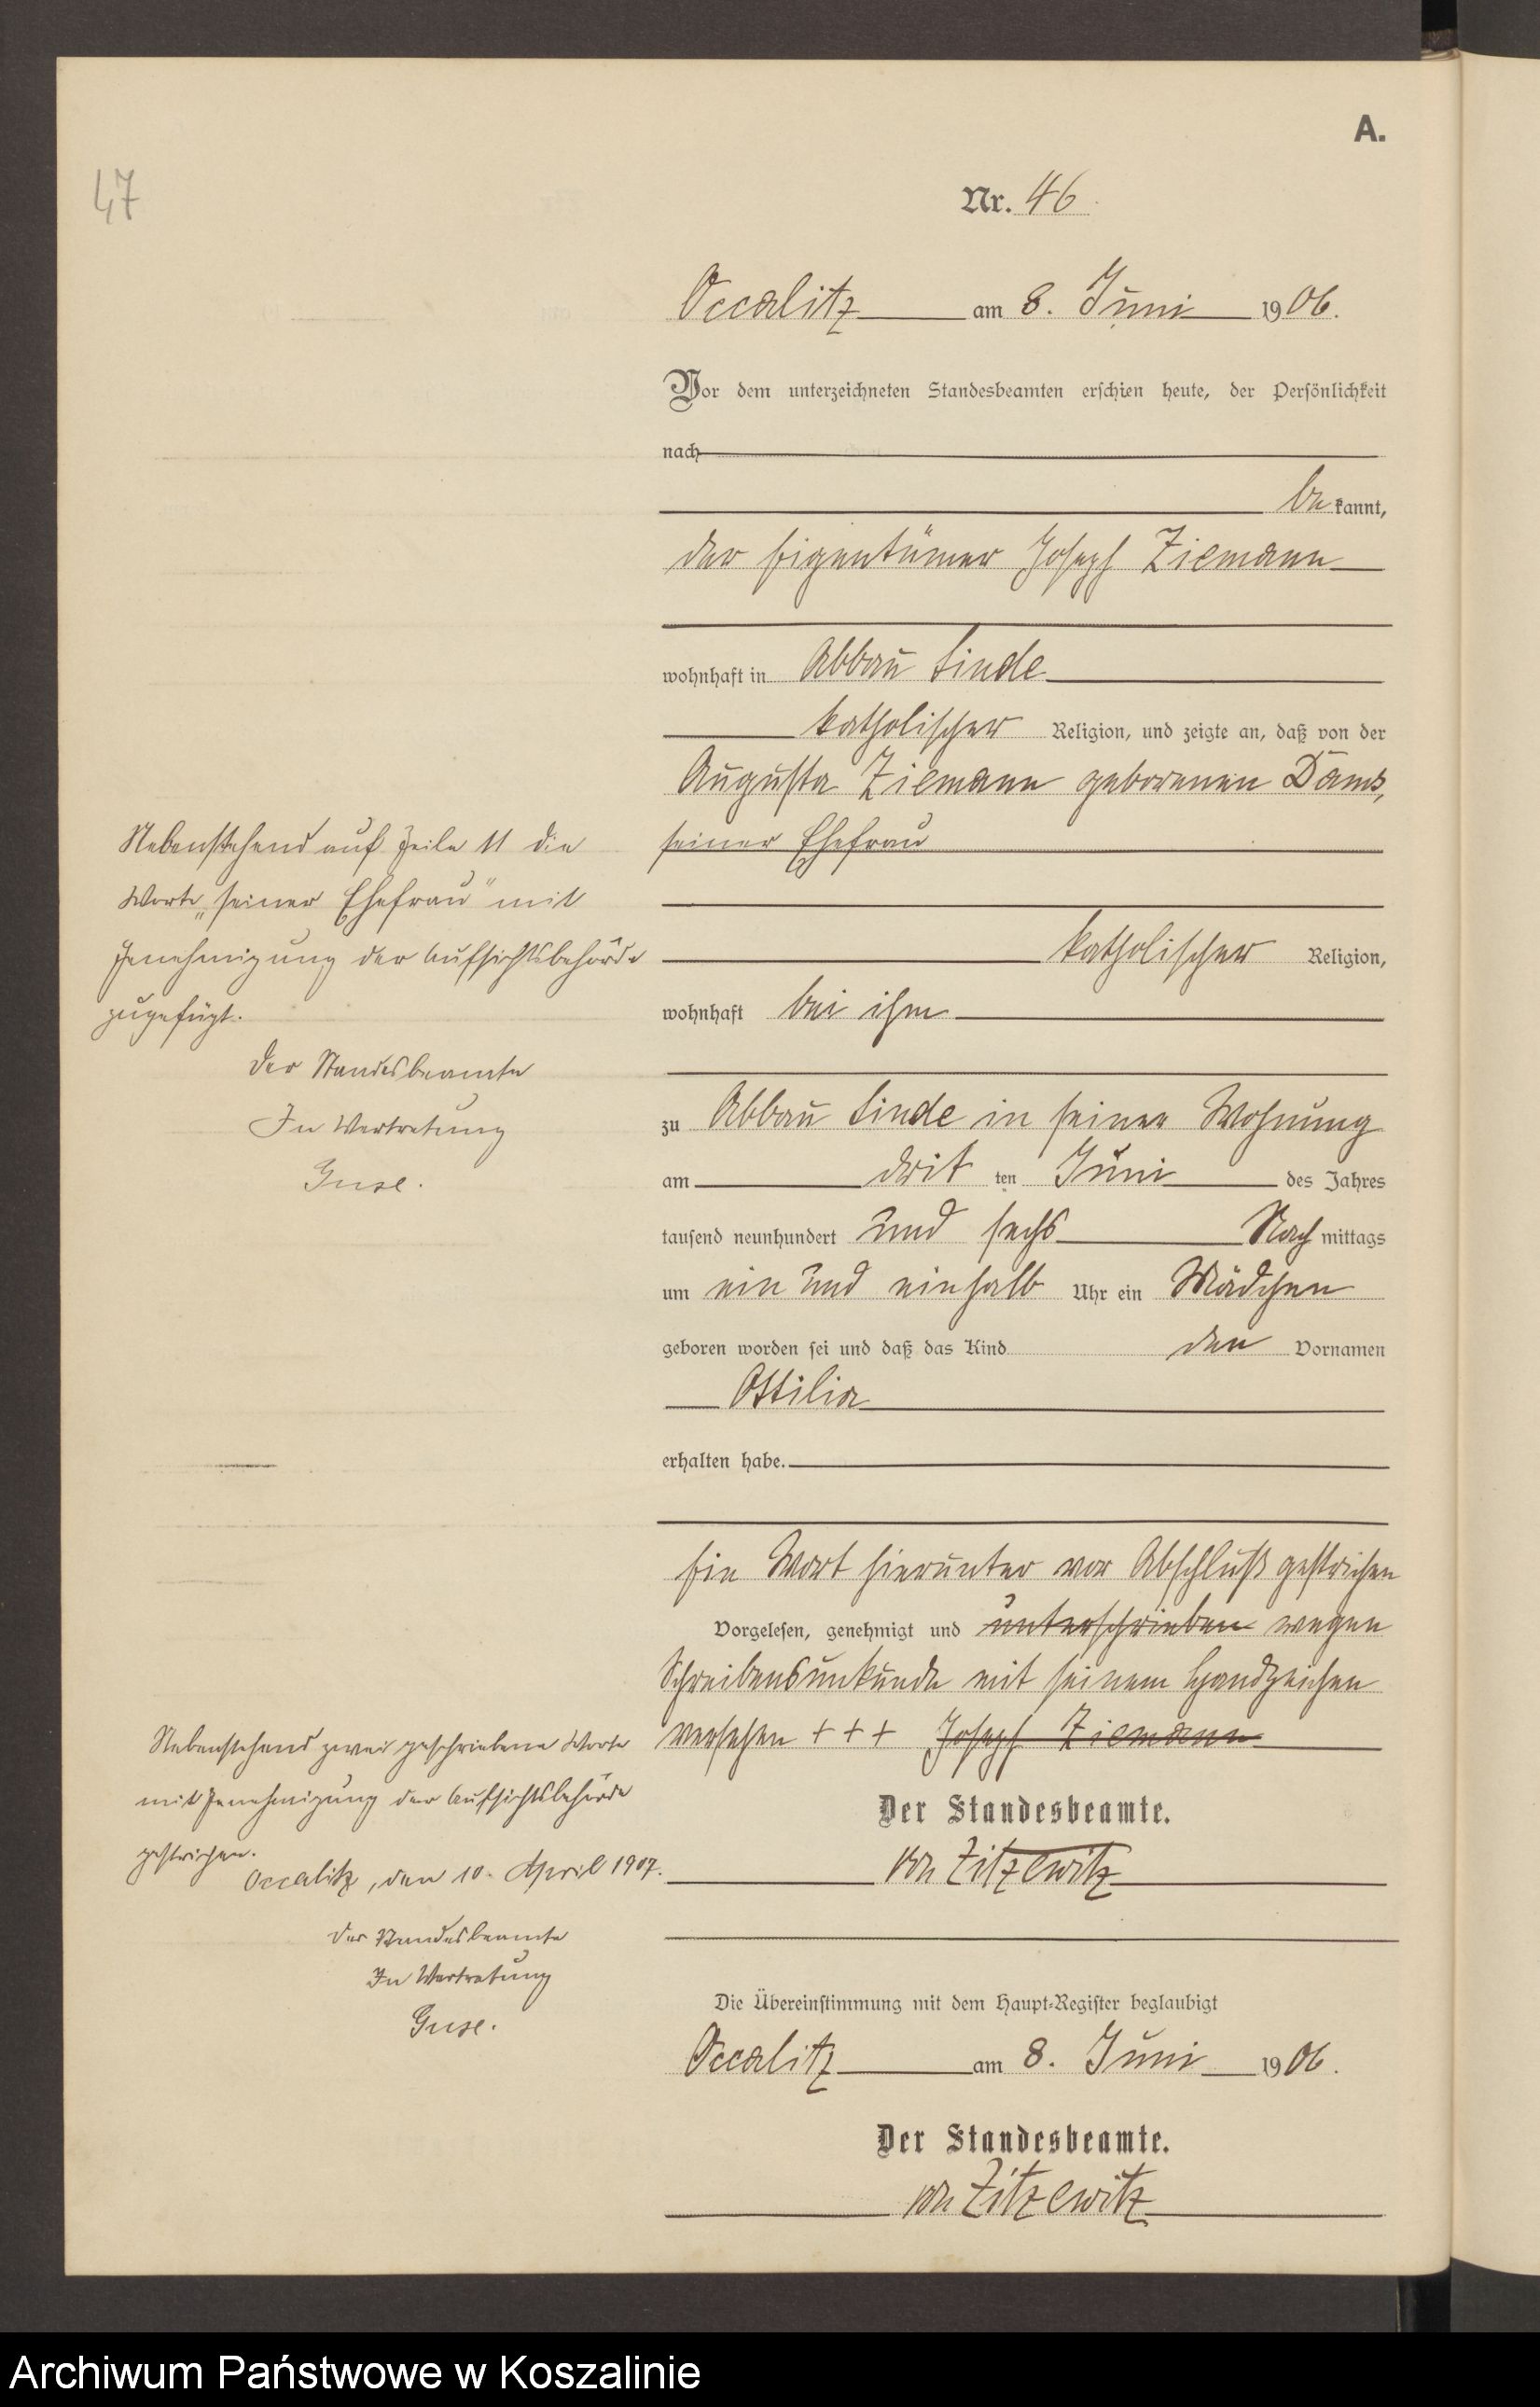 A.
47
Nr. 46
Occalitz am 8. Juni 1906.
Vor dem unterzeichneten Standesbeamten erschien heute, der Persönlichkeit
nach
be kannt,
der Eigentümer Joseph Ziemann
wohnhaft in Abbau Linde
katholischer Religion, und zeigte an, daß von der
Augusta Ziemann geborenen Dams,
seiner Ehefrau
katholischer Religion,
wohnhaft bei ihm
zu Abbau Linde in seiner Wohnung
am drit ten Juni des Jahres
tausend neunhundert und sechs Nach mittags
um ein und einhalb Uhr ein Mädchen
geboren worden sei und daß das Kind den Vornamen
Ottilia
erhalten habe.
Ein Wort hierunter vor Abschluß gestrichen
Vorgelesen, genehmigt und unterschrieben wegen
Schreibensunkunde mit seinem Handzeichen
versehen + + + Joseph Ziemann
Der Standesbeamte.
von Zitzewitz
Die Übereinstimmung mit dem Haupt-Register beglaubigt
Occalitz am 8. Juni 1906.
Der Standesbeamte.
von Zitzewitz
Nebenstehend auf Zeile 11 die
Worte „seiner Ehefrau" mit
Genehmigung der Aufsichtsbehörde
zugefügt.
Der Standesbeamte
In Vertretung
Guse.
Nebenstehend zwei geschriebene Worte
mit Genehmigung der Aufsichtsbehörde
gestrichen.
Occalitz, den 10. April 1907.
Der Standesbeamte
In Vertretung
Guse.
Archiwum Państwowe w Koszalinie